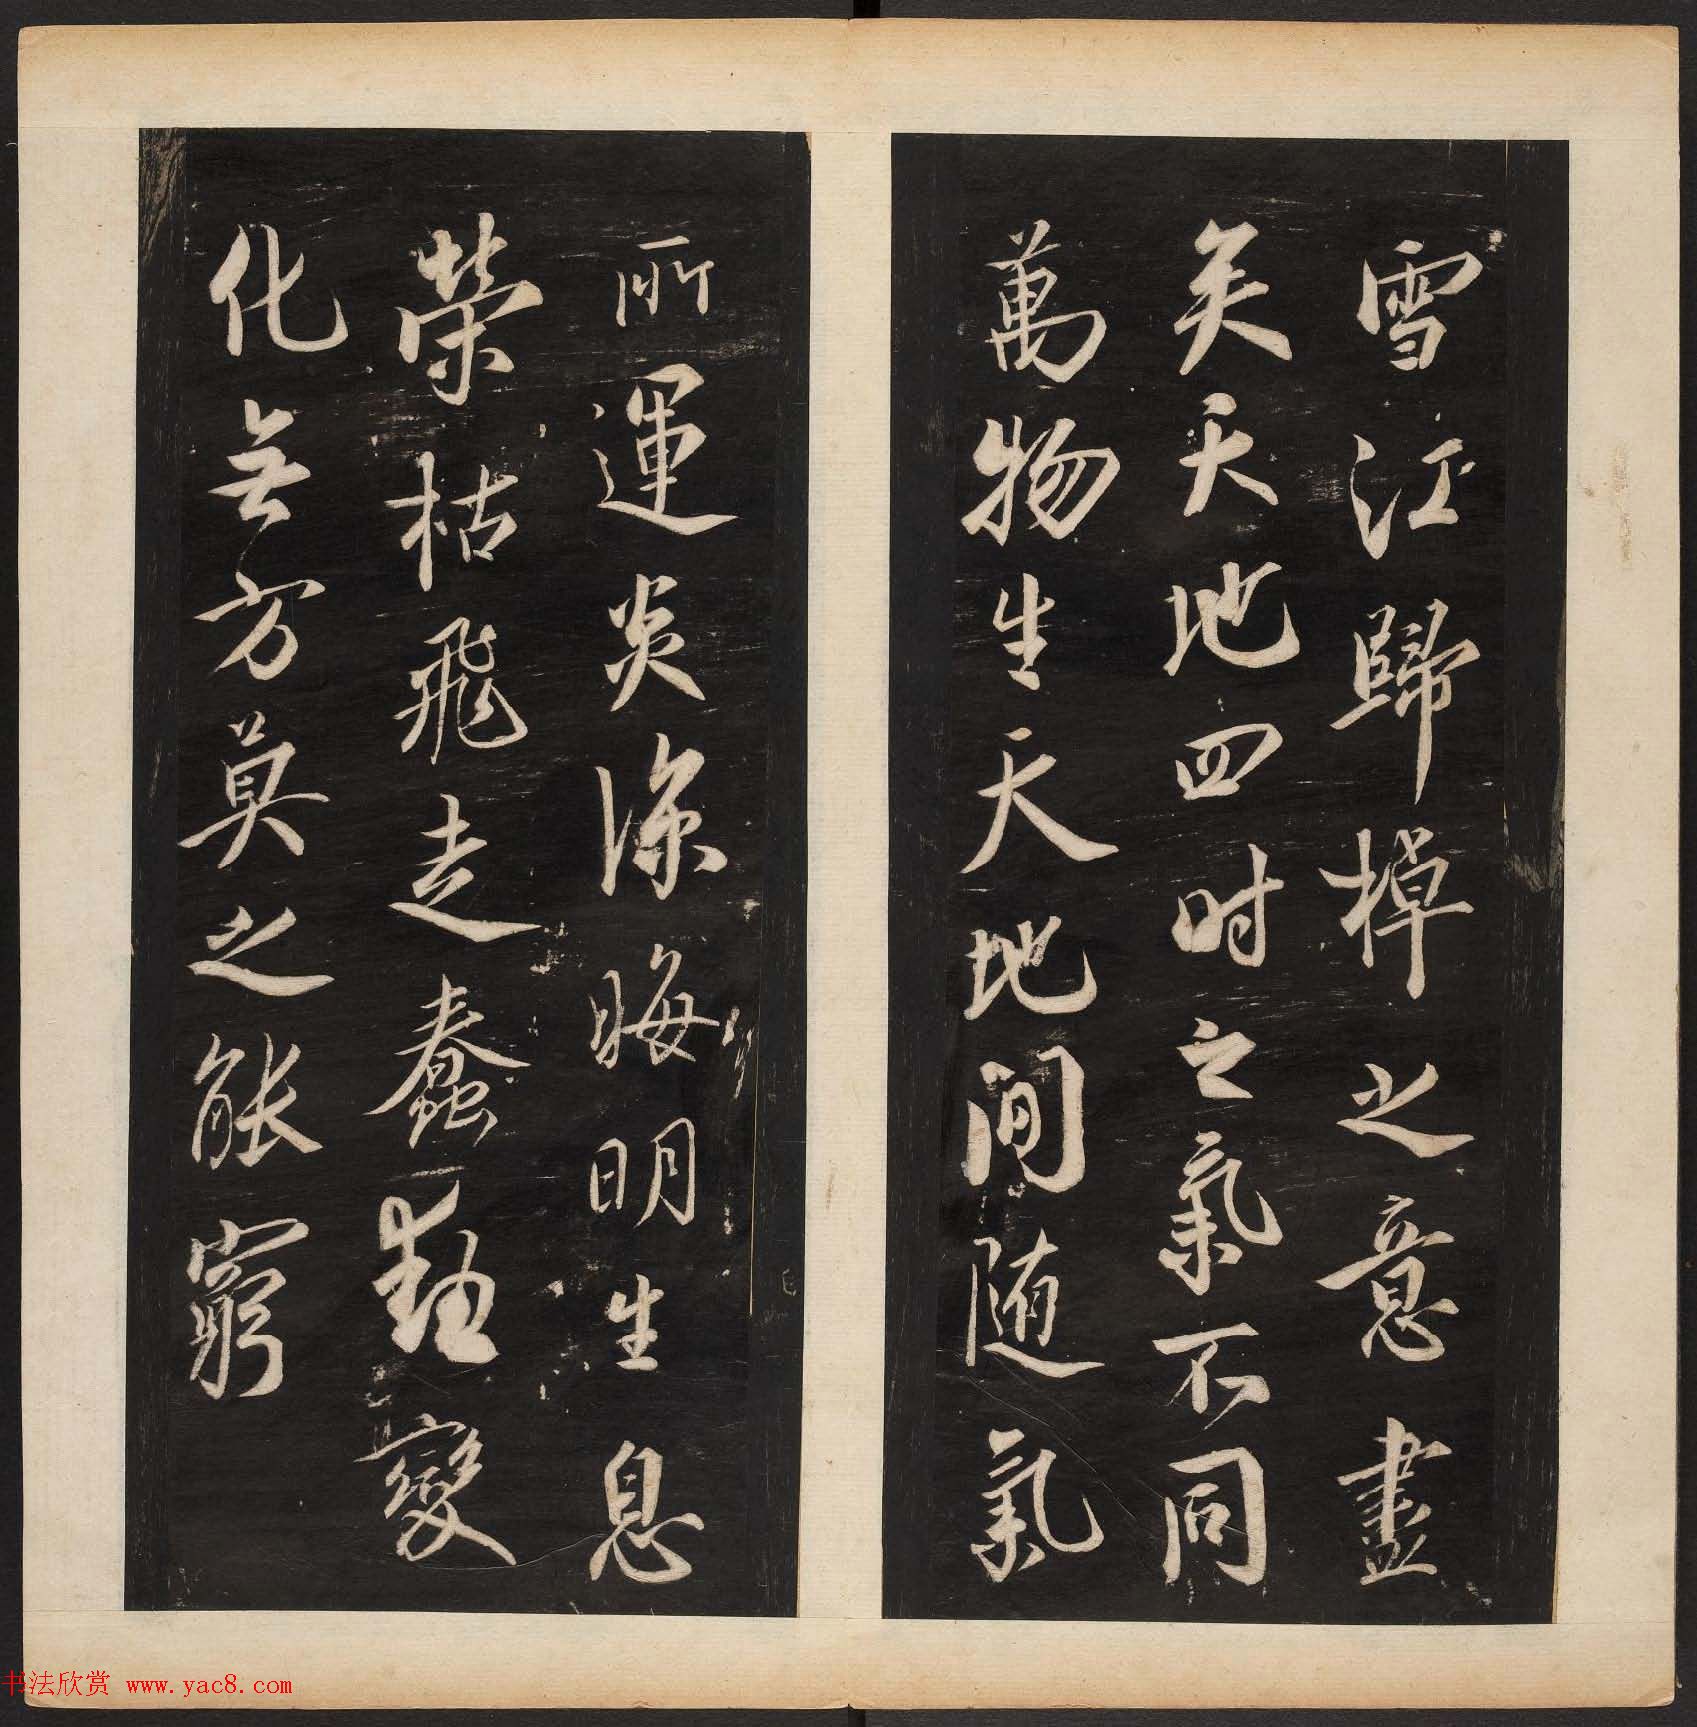 雪江歸棹之意盡
矣天地四时之氣不同
萬物生天地间随氣
所運炎涼晦明生息
榮枯飛走蠢動變
化无方莫之能窮
书法欣赏 www.yac8.com